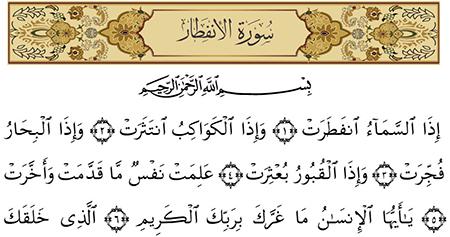 سُورَةُ الِانفِطَارِ
بِسْمِ اللَّهِ الرَّحْمَٰنِ الرَّحِيمِ
إِذَا السَّمَاءُ انفَطَرَتْ ﴿١﴾ وَإِذَا الْكَوَاكِبُ انتَثَرَتْ ﴿٢﴾ وَإِذَا الْبِحَارُ
فُجِّرَتْ ﴿٣﴾ وَإِذَا الْقُبُورُ بُعْثِرَتْ ﴿٤﴾ عَلِمَتْ نَفْسٌ مَّا قَدَّمَتْ وَأَخَّرَتْ
﴿٥﴾ يَٰأَيُّهَا الْإِنسَٰنُ مَا غَرَّكَ بِرَبِّكَ الْكَرِيمِ ﴿٦﴾ الَّذِى خَلَقَكَ